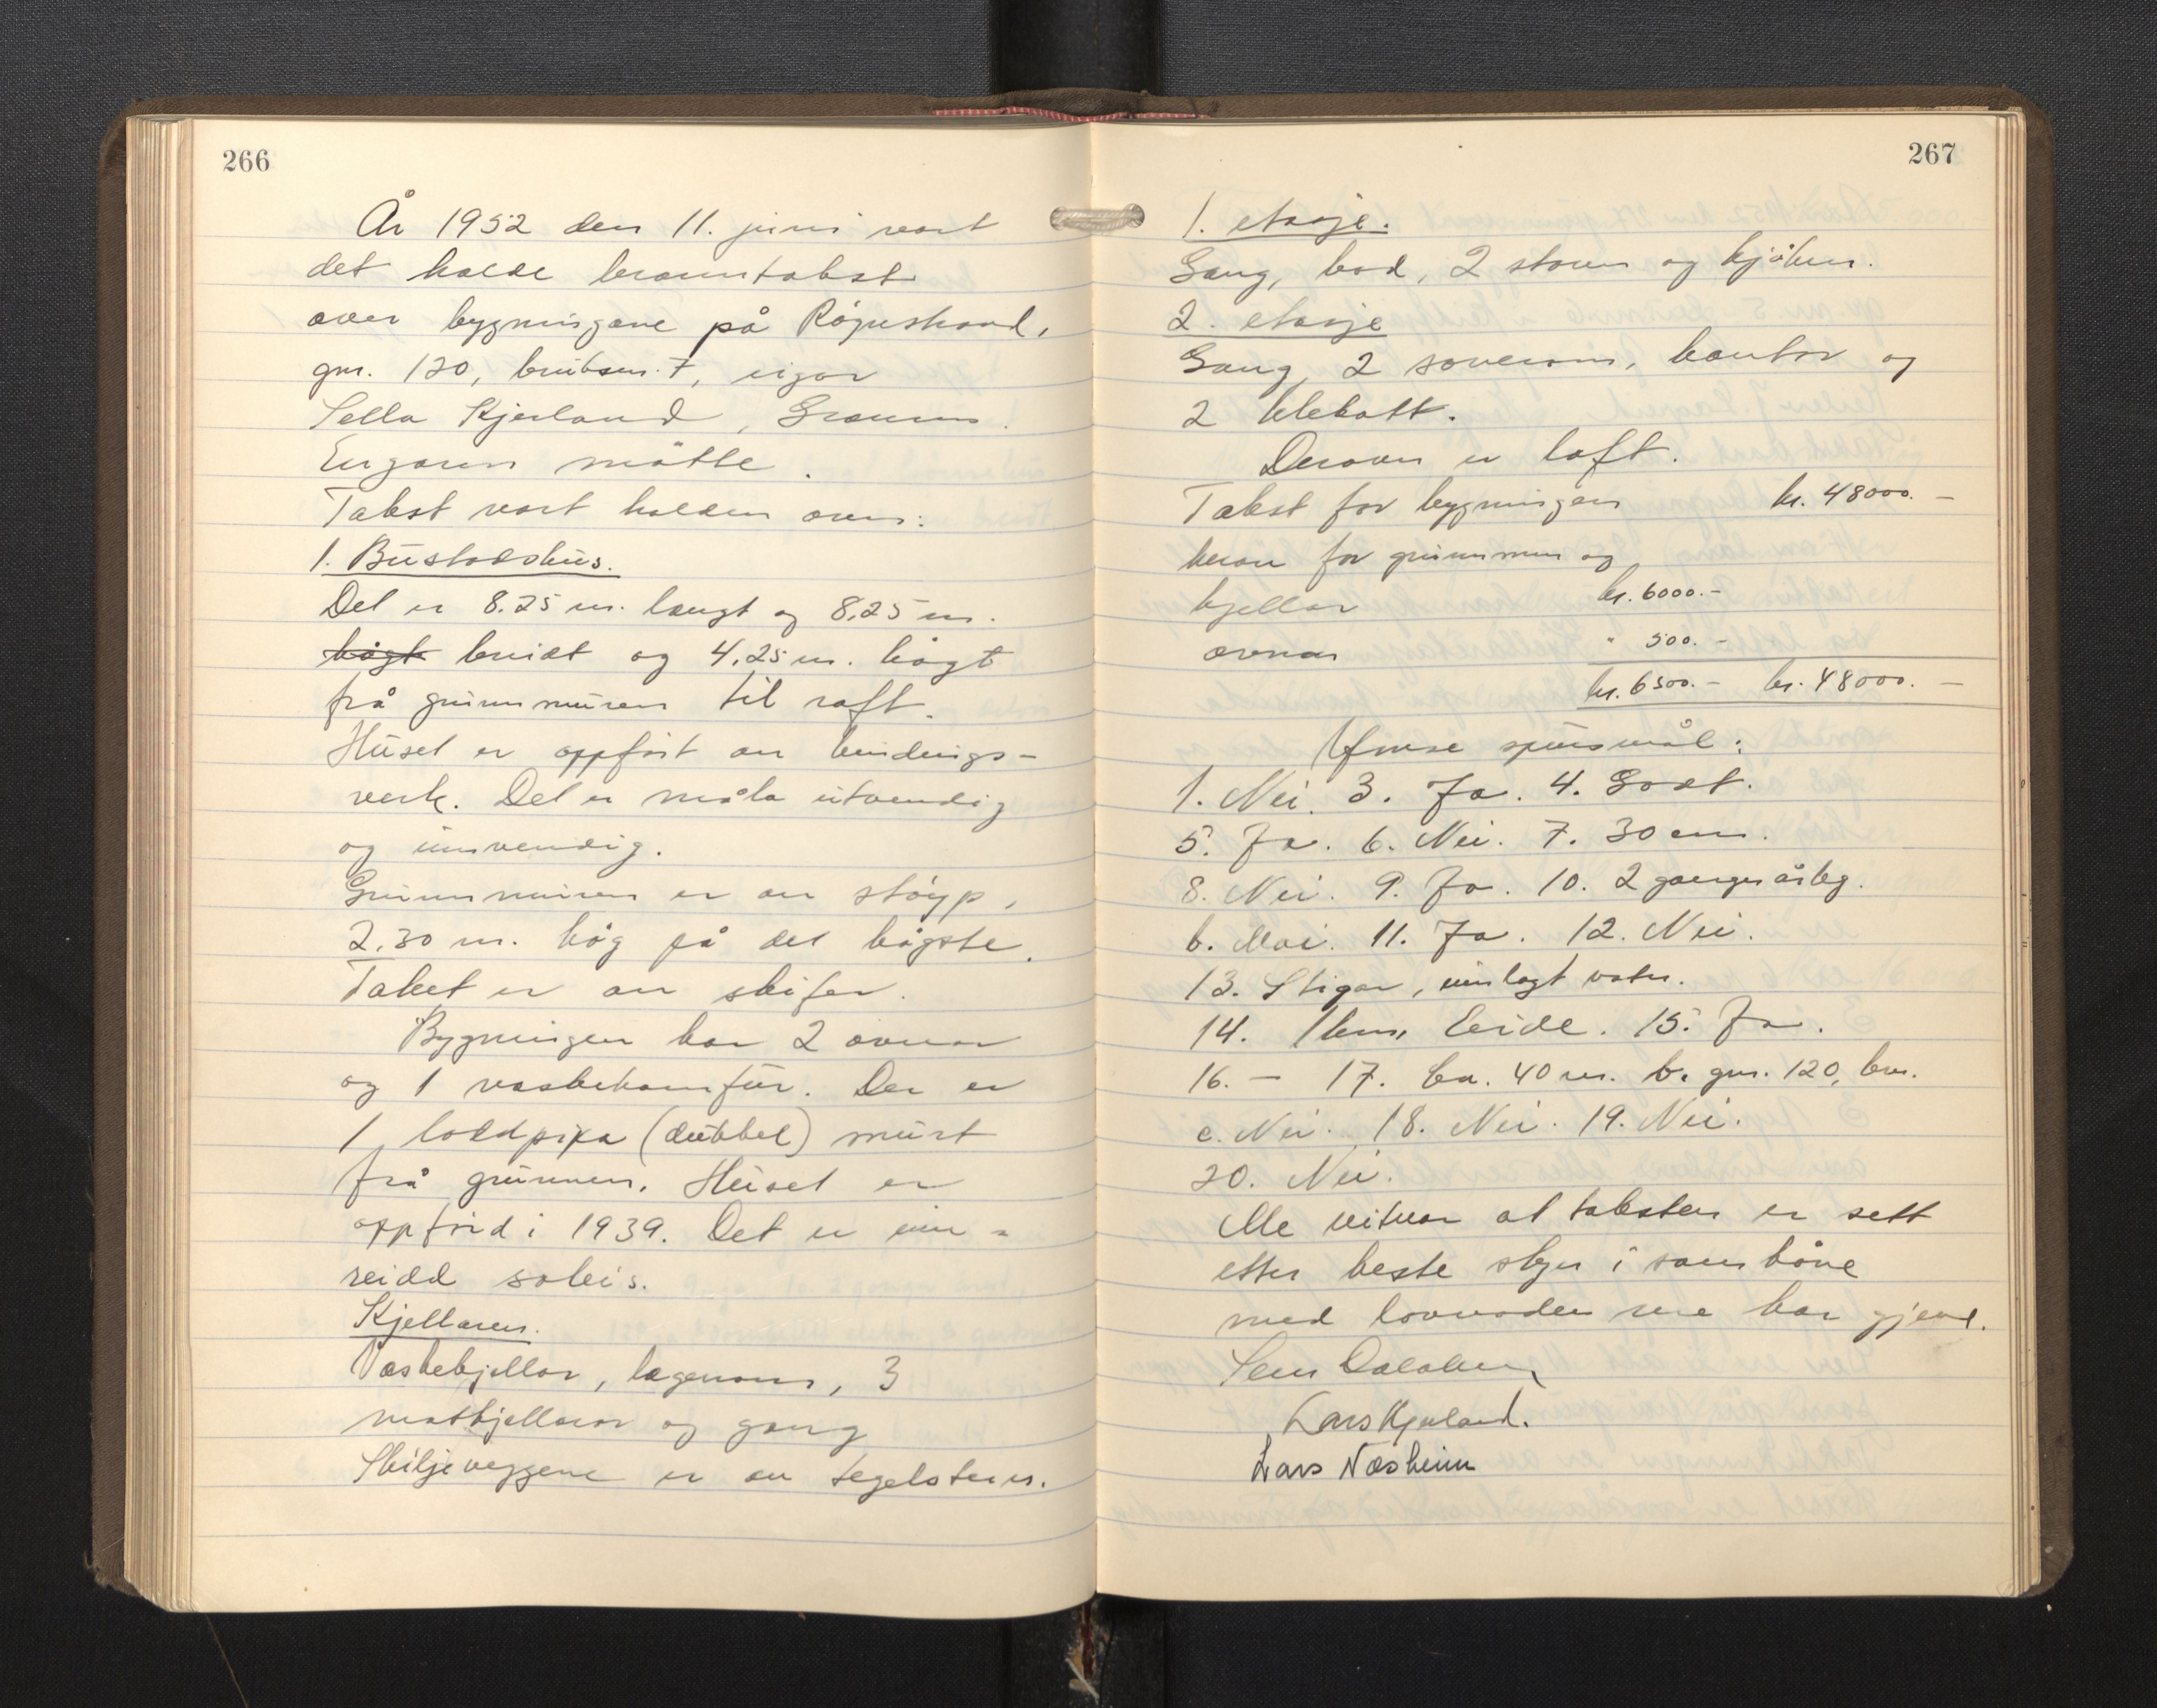 266
År 1952 den 11. juni vart
det halde branntakst
over bygningane på Røynstrand,
gnr. 120, bruksnr. 7, eigar
Sella Kjerland, Granvin.
Eigaren møtte.
Takst vart halden over:
1. Bustadshus.
Det er 8.25 m. langt og 8,25 m.
høgt breidt og 4,25 m. høgt
frå grunnmuren til raft.
Huset er oppført av bindings-
verk. Det er måla utvendig
og innvendig.
Grunnmuren er av støyp,
2.30 m. høg på det høgste.
Taket er av skifer.
Bygningen har 2 ovnar
og 1 vaskekomfur. Der er
1 loddpipa (dubbel) murt
frå grunnen. Huset er
oppførd i 1939. Det er inn-
reidd soleis.
Kjellaren.
Vaskekjellar, lagerrom, 3
matkjellarar og gang
Skiljeveggene er av tegelstein.
267
1. etasje.
Gang, bad, 2 stover og kjøken.
2. etasje
Gang, 2 soverom, kontor og
2 klekott.
Derover er loft.
Takst for bygningen kr. 48000.-
herav for grunnmur og
kjellar kr. 6000.-
ovnar " 500.-
kr. 6500.- kr. 48000.-
Ymse spursmål:
1. Nei. 3. Ja. 4. Godt.
5. Ja. 6. Nei. 7. 30 cm.
8. Nei. 9. Ja. 10. 2 gonger årleg.
b. Mai. 11. Ja. 12. Nei.
13. Stigar, innlagt vatn.
14. 1 km, Eide. 15. Ja.
16. - 17. ca. 40 m. b. gnr. 120, bnr.
c. Nei. 18. Nei. 19. Nei.
20. Nei.
Me vitnar at taksten er sett
etter beste skyn i samhøve
med lovnaden me har gjeve.
Lars Kjerland.
Lars Næsheim